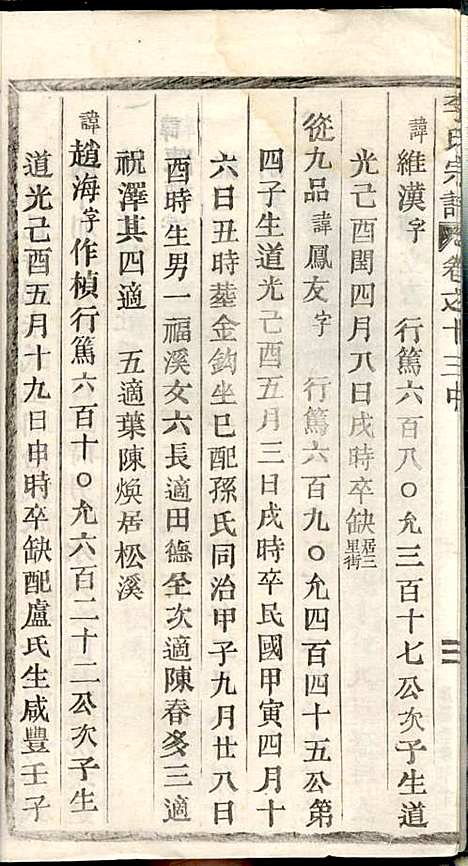 李氏宗譜 卷之十三中 三
諱維漢字 行篤六百八〇允三百十七公次子生道
光己酉閏四月八日戌時卒缺居三里街
從九品諱鳳友字 行篤六百九〇允四百四十五公第
四子生道光己酉五月三日戌時卒民國甲寅四月十
六日丑時葬金鈎坐巳配孫氏同治甲子九月廿八日
酉時生男一福溪女六長適田德全次適陳春多三適
祝澤其四適 五適葉陳煥居松溪
諱趙海字作楨行篤六百十〇允六百二十二公次子生
道光己酉五月十九日申時卒缺配盧氏生咸豐壬子